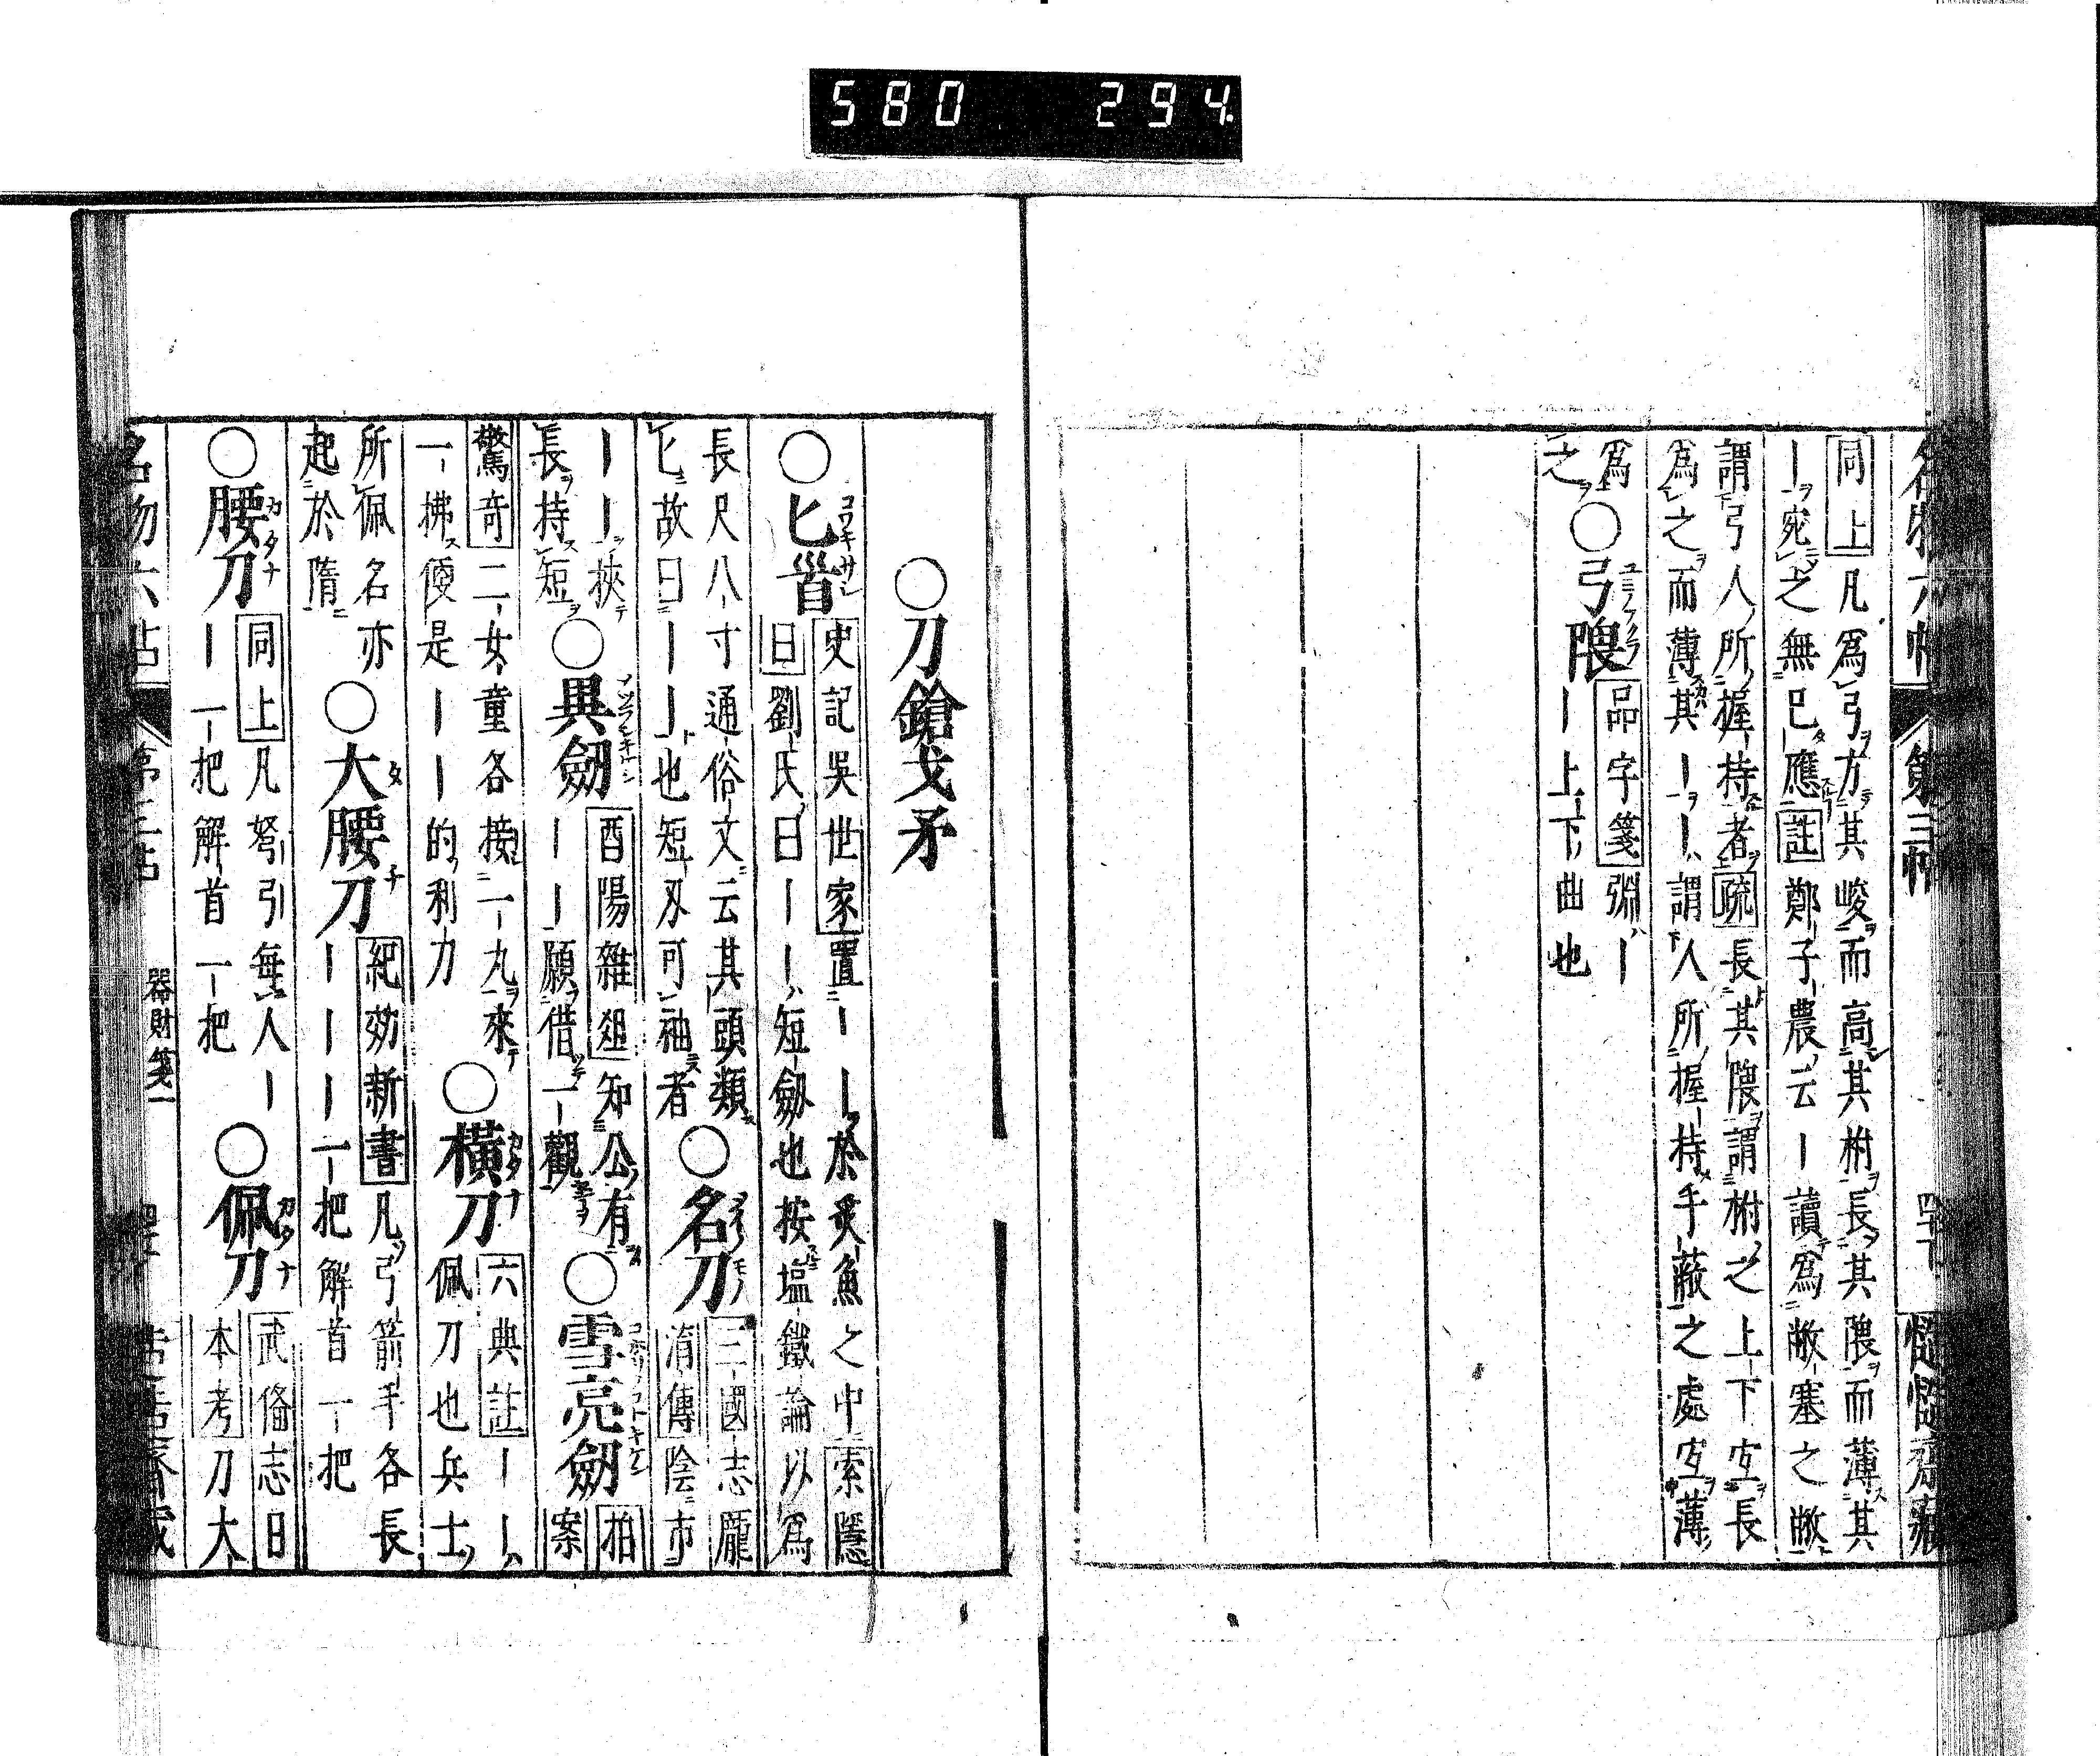 580 294.
名物六帖 第三帖 四十下 慥慥齋藏
同上凡爲弓方其峻而高其柎長其隈而薄其
｜宛之無已應註鄭子農云｜讀爲蔽塞之蔽
謂弓人所握持者疏長其隈謂柎之上下宜長
爲之而薄其｜｜謂人所握持手蔽之處宜薄
爲
之○弓隈品字箋淵｜
｜上下曲也
○刀鎗戈矛
○匕首史記吳世家置｜｜於炙魚之中索隱
曰劉氏曰｜｜短劔也按塩鐵論以爲
長尺八寸通俗文云其頭類
匕故曰｜｜也短刄可袖者○名刀三國志龐
淯傳陰市
｜｜挾
長持短○異劔酉陽雜俎知公有
｜｜願借一觀○雪亮劔拍
案
驚奇二女童各接一丸來
一拂便是｜｜的利刀○橫刀六典註｜｜
佩刀也兵士
所佩名亦
起於隋○大腰刀紀効新書凡弓箭手各長
｜｜｜一把解首一把
○腰刀同上凡弩引無人｜
｜一把解首一把○佩刀武俻志日
本考刀大
名物六帖 器財箋一